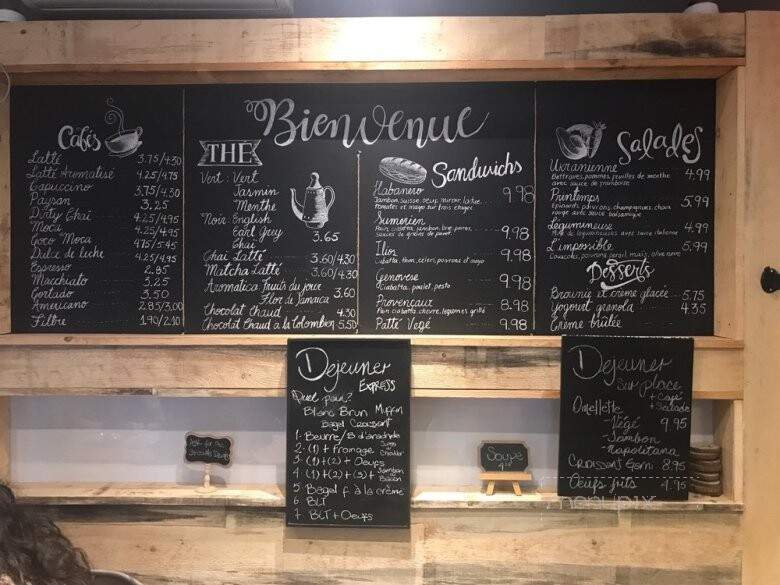 Bienvenue
Cafés
Latté 3.75/4.30
Latté Aromatisé 4.25/4.75
Capuccino 3.75/4.30
Paysan 3.25
Dirty Chaï 4.25/4.95
Moca 4.25/4.95
Coco Moca 4.75/5.45
Dulce de leche 4.25/4.95
Espresso 2.85
Macchiato 3.25
Cortado 3.50
Americano 2.85/3.00
Filtre 1.90/2.10
THÉ
Vert: Vert
Jasmin
Menthe
Noir: English
Earl Grey 3.65
Chaï
Chaï Latté 3.60/4.30
Matcha Latté 3.60/4.30
Aromatica fruits du jour 3.60
Flor de Jamaica
Chocolat Chaud 4.30
Chocolat Chaud à la Colombien 5.50
Sandwichs
Habanero 9.98
Jambon, suisse, oeuf, mirroir, laitue
Tomates et mayo sur trois étages
Sumerien 9.98
Pain ciabatta, jambon, brie, poires
Ilios 9.98
Ciabatta, thon, céleri, poivrons et mayo
Genovese 9.98
Ciabatta, poulet, pesto
Provençaux 8.98
Pain ciabatta, chèvre, légumes grillé
Patté Végé 9.98
Salades
Ukranienne 4.99
Bettraves, pommes, feuilles de menthe
avec sauce de framboise
Printemps 5.99
Epinards, poivrons, champignons, chaux
rouge avec sauce balsamique
Légumineuse 4.99
Mix de légumineuses avec sauce italienne
L'impossible 5.99
Desserts
Brownie et crème glacée 5.75
Yogourt granola 4.35
Crème brûlée
Dejeuner
EXPRESS
Quel pain?
Blanc Brun Muffin
Bagel Croissant
1- Beurre/B d'arachide
2- (1) + Fromage Suiss Cheddar
3- (1) + (2) + Oeufs
4 (1) + (2) + (3) + Jambon Bacon
5 Bagel f à la crème
6 BLT
7 BLT + Oeufs
Soupe
Dejeuner
Sur place
+ Café
+ Salade
Omellette
- Végé 9.95
- Jambon
- Napolitana
Croissant Garni 8.95
Oeufs frits 4.95
menupix